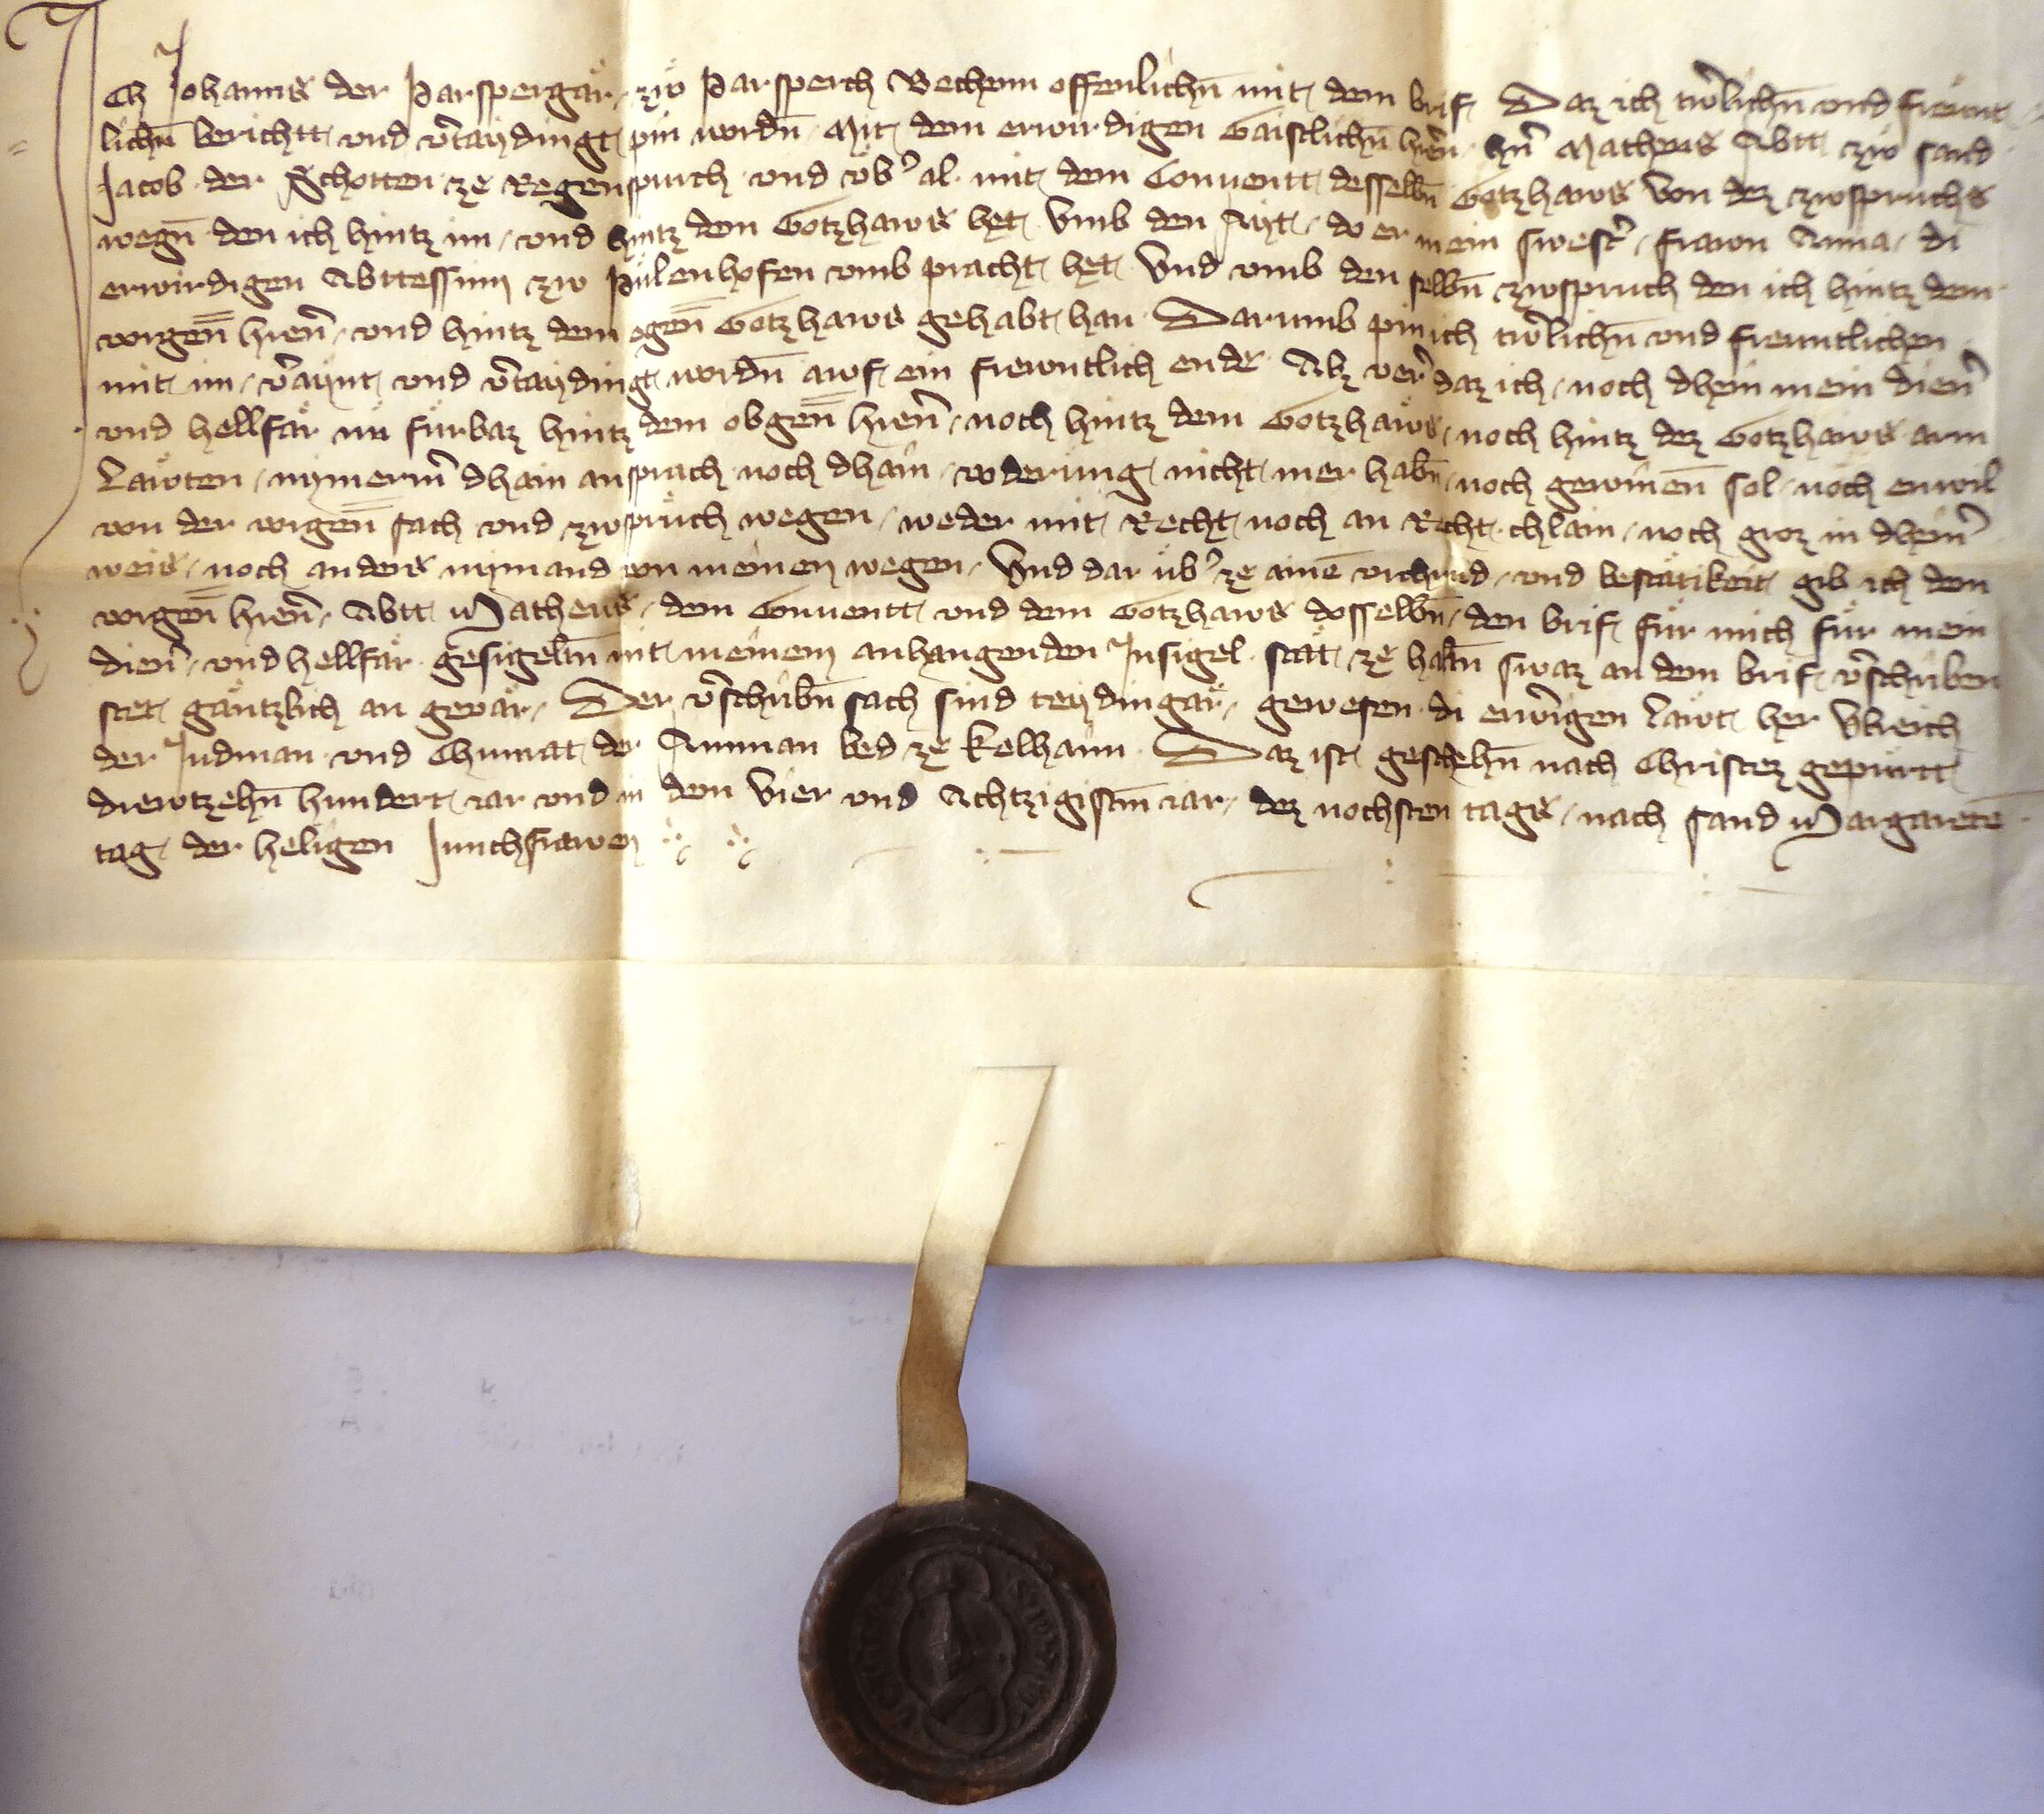 Ich Johanns der Parspergär zw̃ Parsperch Vechenn offenlichn̄ mit dem brif Daz ich tugentlichn̄ vnd frewnt
lichn̄ berichtt vnd v̓taydingt pin wordn̄ Mit dem erwirdigen Gaistlichn̄ hren̄ hn̓ Matheus Abtt zw sand
Jacob der Schotten ze Regenspurch vnd vb̓ al mit dem Conuentt desselbn̄ Gotzhaws Von dez zwspruchs
wegn̄ den ich hintz im vnd hintz dem Gotzhaws het Vmb den do er mein swest̓ frawn Anna di
erwirdigen Abttessinn zw Pülenhofen vmb pracht het Vnd vmb den selbn̄ zwspruch den ich hintz dem
vorgen̄ hren̄ vnd hintz dem egen̄ Gotzhaws gehabt han Darumb pin ich vnd frewntlichen
mit im v̓aynt vnd v̓taydingt wordn̄ awf ein frewntlich ende Alz ver daz ich noch dhein mein dien̓
vnd hellfär nü fürbaz hintz dem obgen̄ hren̄ noch hintz dem Gotzhaws noch hintz dez Gotzhaws arm
Läwten nymerm̓ dhain ansprach noch dhain voderung nicht mer habn̄ noch gewinen̄ sol noch enwil
von der vorgen̄ sach vnd zwspruch wegen weder mit Recht noch an Recht chlain noch groz in dhein̓
weis noch anders nymand von meinen wegen Vnd dar üb̓ ze aine vrchund vnd bestätikeit gib ich dem
vorgen̄ hren̄ Abtt Matheus dem Conuentt vnd dem Gotzhaws dosselbn̄ den brif für mich für mein
dien̓ vnd hellfär gesigeltn̄ mit meinem anhangenden Insigel stät ze habn̄ swaz an dem brif v̓schriben
stet gäntzlich an gevär Der v̓schribn̄ sach sind teydingär gewesen di erw̓igen Läwt her Vlreich
der Judman vnd Chunrat der Amman bed ze Kelhaim Daz ist geschehn̄ nach Christez gepurtt
drewtzehn̄ hundert iar vnd in dem Vier vnd Achtzigistn̄ iar dez nochsten tags nach sand Margareten̄
tag der heligen Junchfrawen